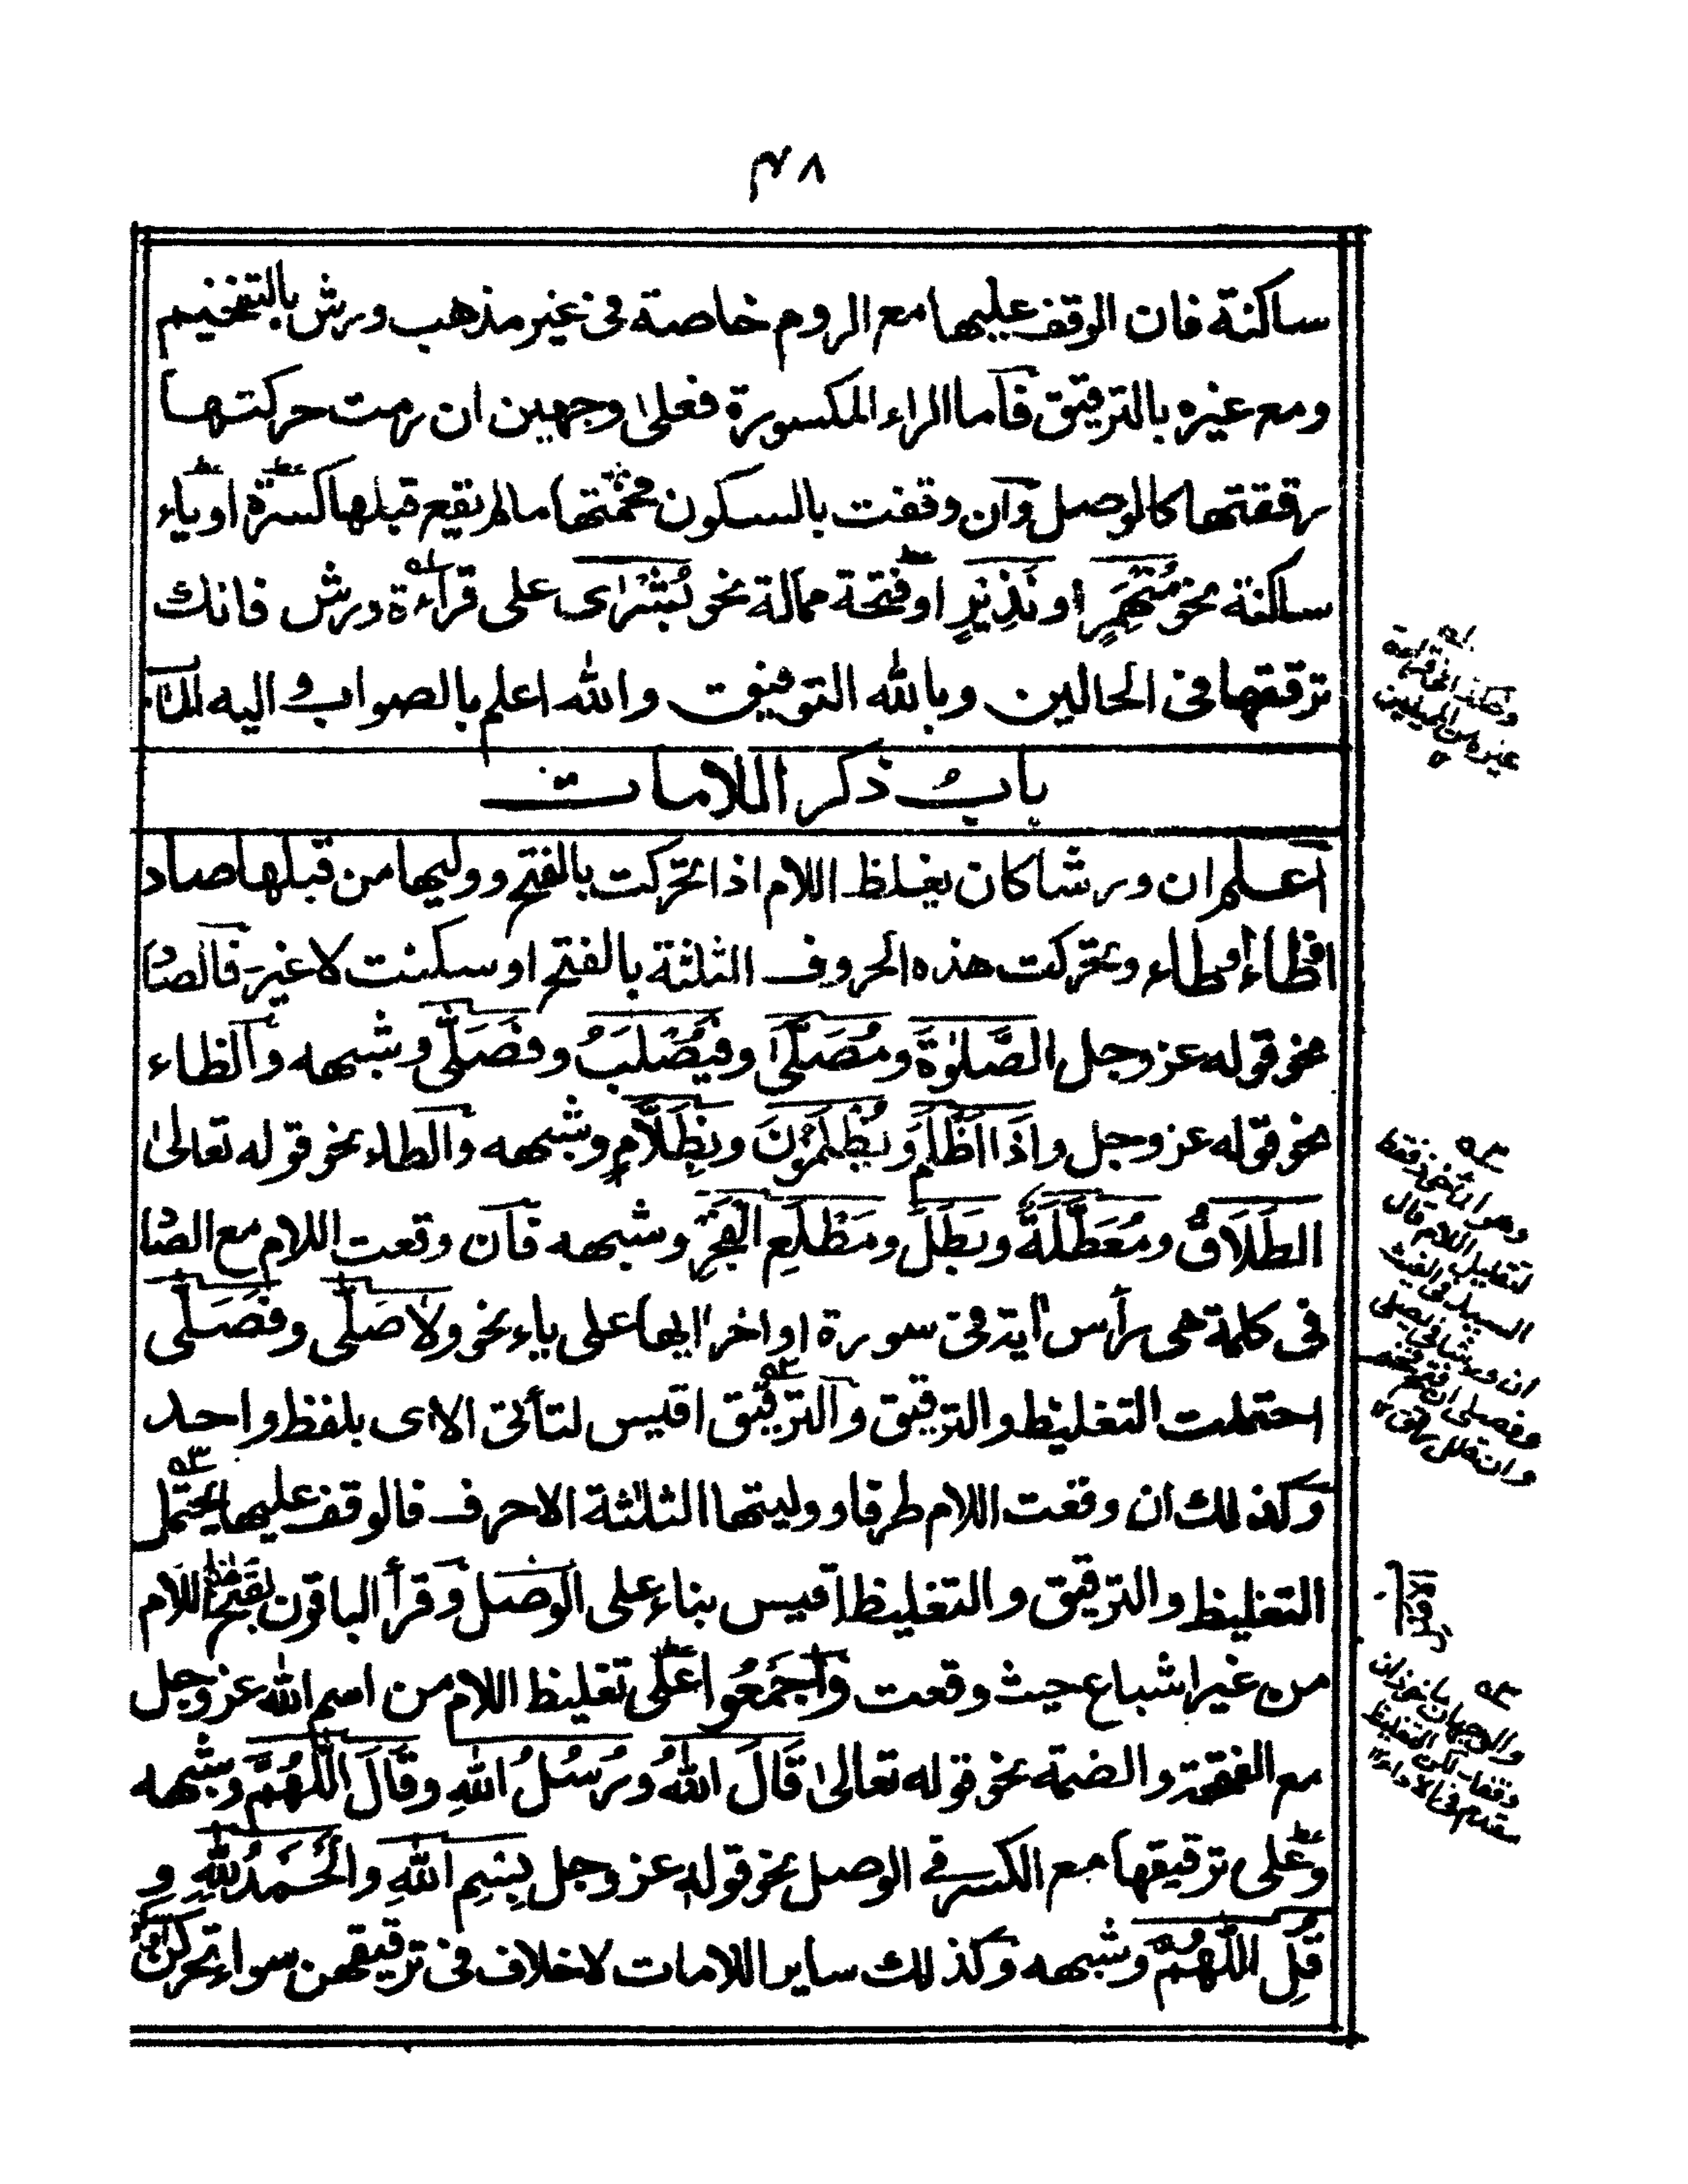 ٤٨
ساكنة فان الوقف عليها مع الروم خاصة فى غير مذهب ورش بالتفخيم
ومع غيره بالترقيق فاما الراء المكسورة فعلى وجهين ان رمت حركتها
رققتها كالوصل وان وقفت بالسكون فخمتها مالم يقع قبلها كسرة او ياء
ساكنة نحو مُنْهَمِرٍ او نَذِيْرٍ او فتحة ممالة نحو بُشْرٰى على قراءة ورش فانك
ترققها فى الحالين وبالله التوفيق والله اعلم بالصواب و اليه المآب
باب ذكر اللامات
اعلم ان ورشا كان يغلظ اللام اذا تحركت بالفتح ووليها من قبلها صاد
اوظاء اوطاء وتحركت هذه الحروف الثلثة بالفتح او سكنت لا غير فالصاد
نحو قوله عز وجل الصَّلٰوةَ ومُصَلّٰى وفَيُصْلَبُ وفَصَلّٰى وشبهه والظاء
نحو قوله عز وجل واِذَا اَظْلَمَ ويُظْلَمُوْنَ وبِظَلَّامٍ وشبهه والطاء نحو قوله تعالى
الطَلَاقُ ومُعَطَّلَةٌ وبَطَلَ ومَطْلَعِ الْفَجْرِ وشبهه فان وقعت اللام مع الصاد
فى كلمة هى رأس اية فى سورة اواخر ايها على ياء نحو ولا صَلّٰى وفَصَلّٰى
احتملت التغليظ والترقيق والترقيق اقيس لتأتى الاى بلفظ واحد
وكذلك ان وقعت اللام طرفا ووليتها الثلثة الاحرف فالوقف عليها يحتمل
التغليظ والترقيق والتغليظ اقيس بناء على الوصل وقرأ الباقون بفتح اللام
من غير اشباع حيث وقعت واجمعوا على تغليظ اللام من اسم الله عز وجل
مع الفتحة والضمة نحو قوله تعالى قَالَ اللّٰهُ ورُسُلُ اللّٰهِ وقَالَ اللّٰهُمَّ وشبهه
وعلى ترقيقها مع الكسر فى الوصل نحو قوله عز وجل بِسْمِ اللّٰهِ والْحَمْدُ لِلّٰهِ و
قُلِ اللّٰهُمَّ وشبهه وكذلك ساير اللامات لا خلاف فى ترقيقهن سواء تحركن
غيره من المميلين